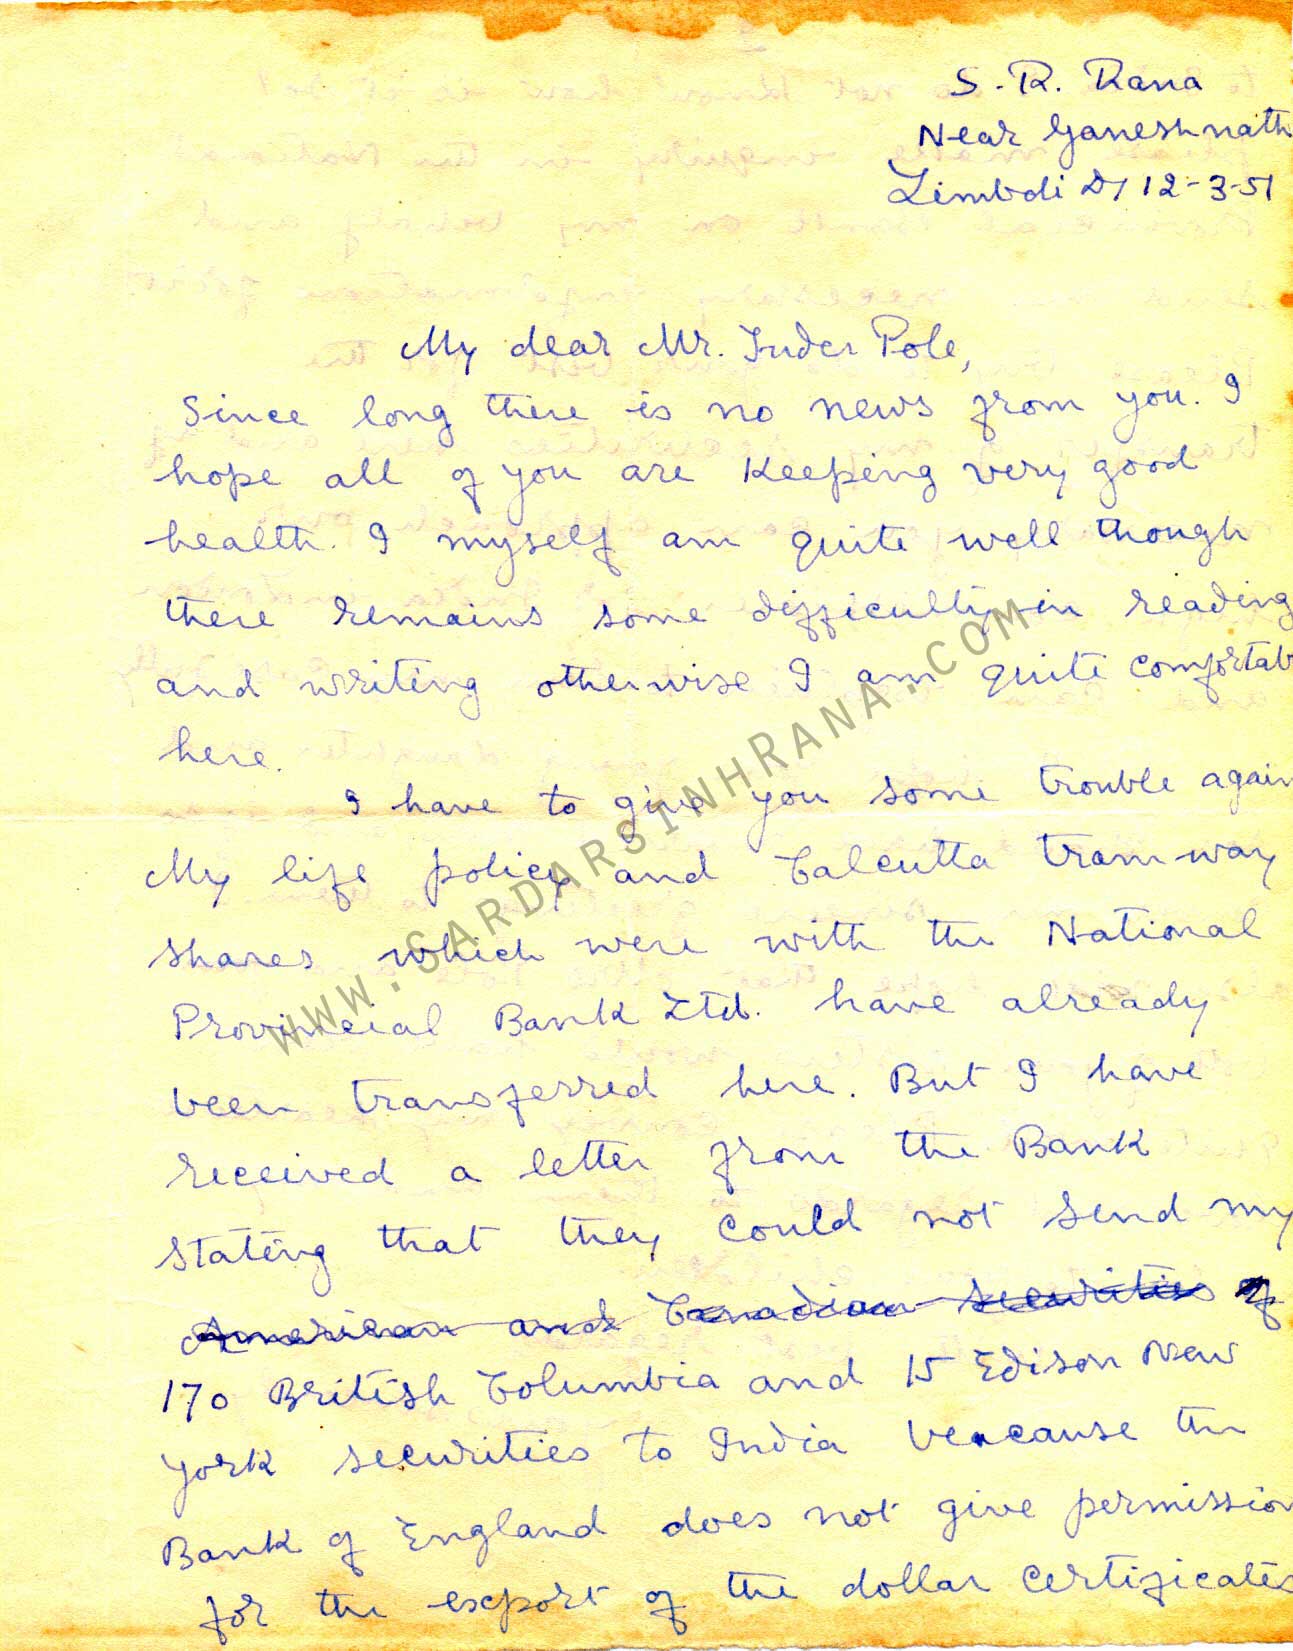 S. R. Rana
Near Ganeshnath
Limbdi D/ 12-3-51
My dear Mr. Inder Pole,
Since long there is no news from you. I
hope all of you are keeping very good
health. I myself am quite well though
there remains some difficulty in reading
and writing otherwise I am quite comfortab
here.
I have to give you some trouble again
My life policy and Calcutta tramway
shares which were with the National
Provincial Bank Ltd. have already
been transferred here. But I have
received a letter from the Bank
stating that they could not send my
American and Canadian securities of
170 British Columbia and 15 Edison New
York securities to India because the
Bank of England does not give permission
for the export of the dollar certificates
WWW.SARDARSINHRANA.COM